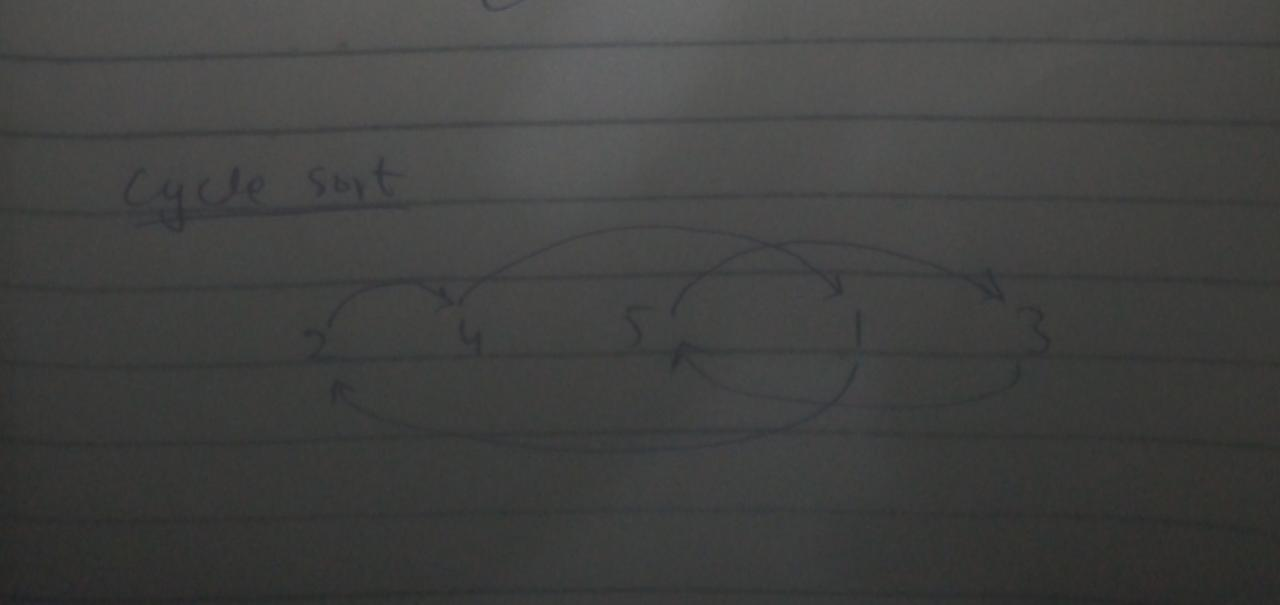 Cycle sort
2 4 5 1 3